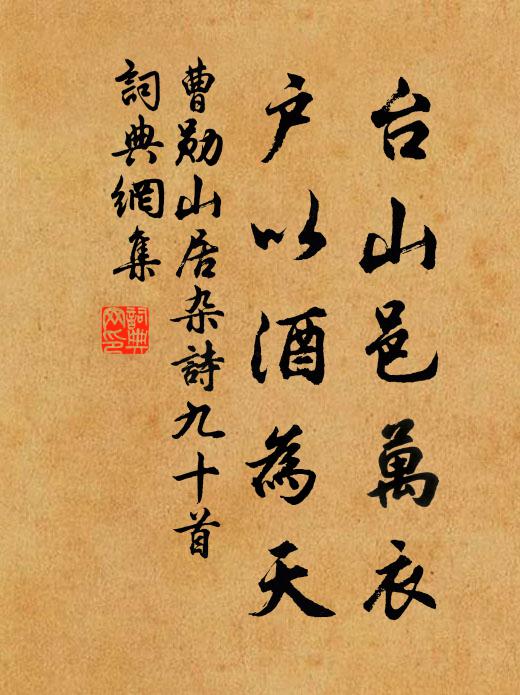 台山邑萬衣
户以酒為天
曹勋山居杂詩九十首
詞典網集
詞典網印